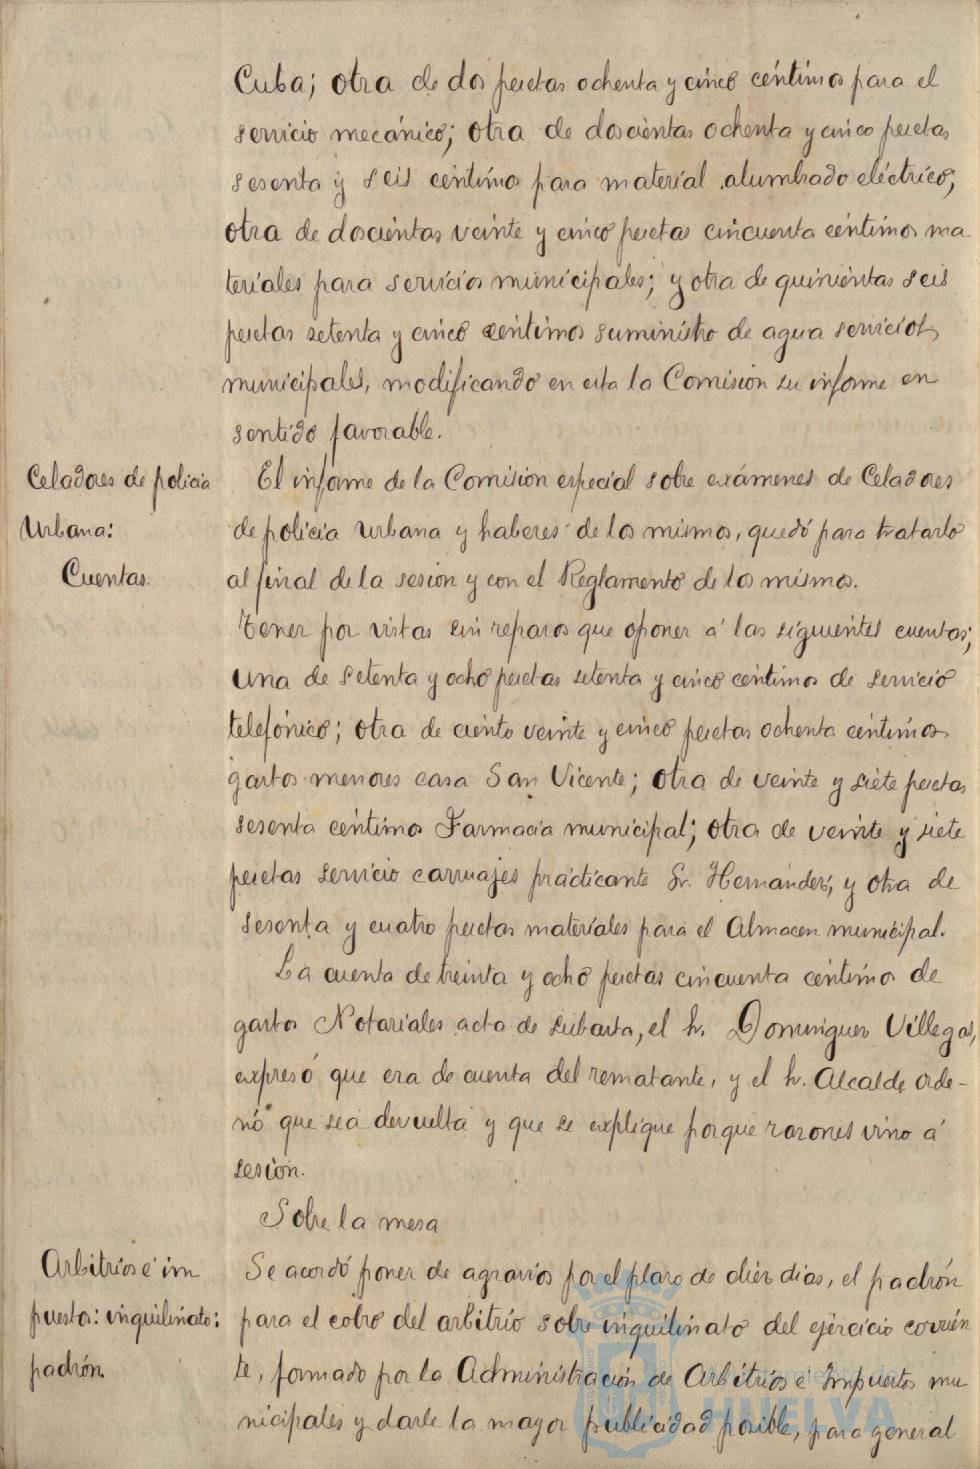 Cuba; otra de dos pesetas ochenta y cinco céntimos para el
servicio mecánico; otra de doscientas ochenta y cinco pesetas
sesenta y seis céntimos para material alumbrado eléctrico;
otra de doscientas veinte y cinco pesetas cincuenta céntimos ma
teriales para servicios municipales; y otra de quinientas seis
pesetas setenta y cinco centimos suministro de agua servicios
municipales, modificando en esta la Comision su informe en
sentido favorable.
Celadores de policia
Urbana:
Cuentas.
El informe de la Comision especial sobre exámenes de Celadores
de policia urbana y haberes de los mismos, quedó para tratarlo
al final de la sesion y con el Reglamento de los mismos.
Tener por vistas sin reparos que oponer á las siguientes cuentas;
una de setenta y ocho pesetas setenta y cinco centimos de servicio
telefónico; otra de ciento veinte y cinco pesetas ochenta céntimos
gastos menores casa San Vicente; otra de veinte y siete pesetas
sesenta céntimos Farmacia municipal; otra de veinte y siete
pesetas servicio carruajes practicante Sr. Hernández, y otra de
sesenta y cuatro pesetas materiales para el Almacen municipal.
La cuenta de treinta y ocho pesetas cincuenta céntimos de
gastos Notariales acta de subasta, el Sr. Dominguez Villegas,
expresó que era de cuenta del rematante, y el Sr. Alcalde orde-
nó que sea devuelta y que se explique porque razones vino á
sesion.
Sobre la mesa
Arbitrios é im
puestos: inquilinato:
padrón.
Se acordó poner de agravios por el plazo de diez dias, el padrón
para el cobro del arbitrio sobre inquilinato del ejercicio corrien
te, formado por la Administración de Arbitrios é Impuestos mu
nicipales y darle la mayor publicidad posible, para general
Ayuntamiento de
HUELVA